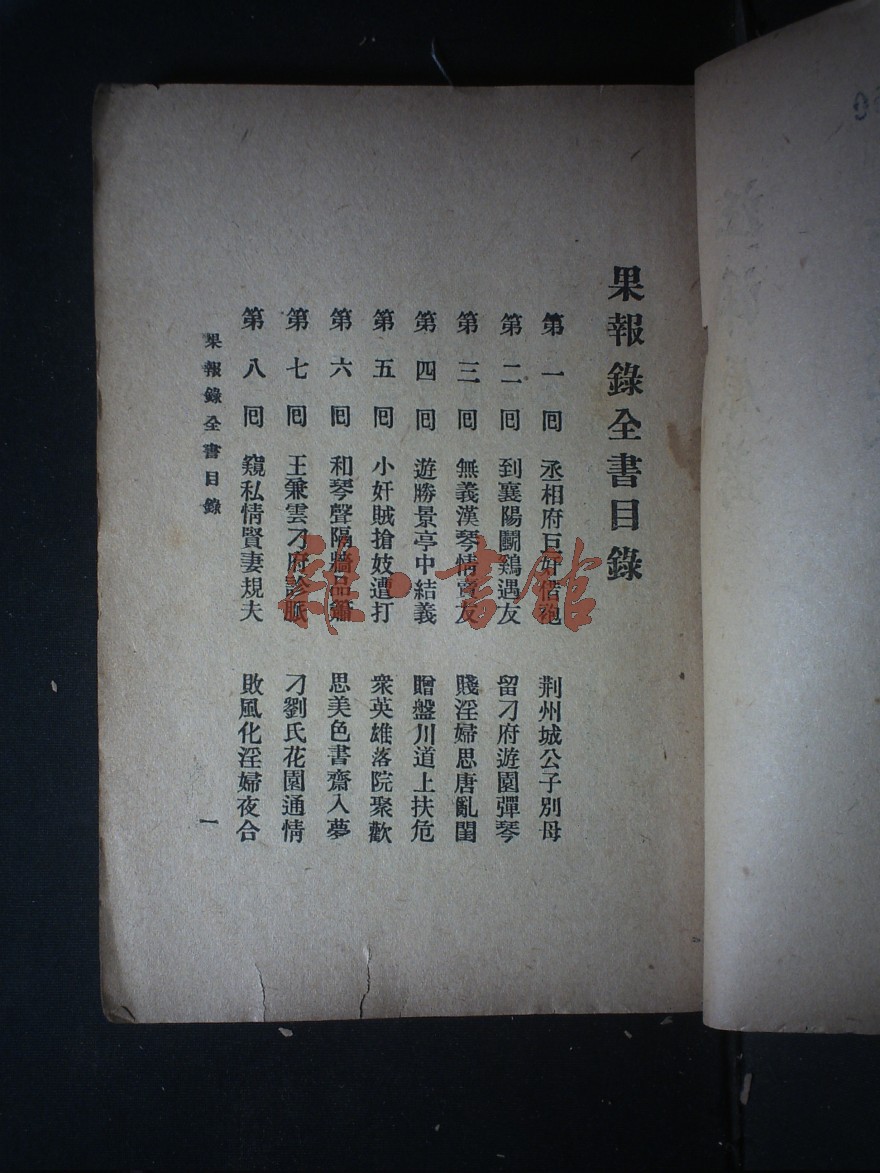 果報錄全書目錄
第一囘 丞相府巨奸借砲 荆州城公子別母
第二囘 到襄陽鬭鷄遇友 留刁府遊園彈琴
第三囘 無義漢琴情賣友 賤淫婦思唐亂閨
第四囘 遊勝景亭中結義 贈盤川道上扶危
第五囘 小奸賊搶妓遭打 衆英雄落院聚歡
第六囘 和琴聲隔牆品簫 思美色書齋入夢
第七囘 王兼雲刁府診脈 刁劉氏花園通情
第八囘 窺私情賢妻規夫 敗風化淫婦夜合
果報錄全書目錄
一
雜·書館